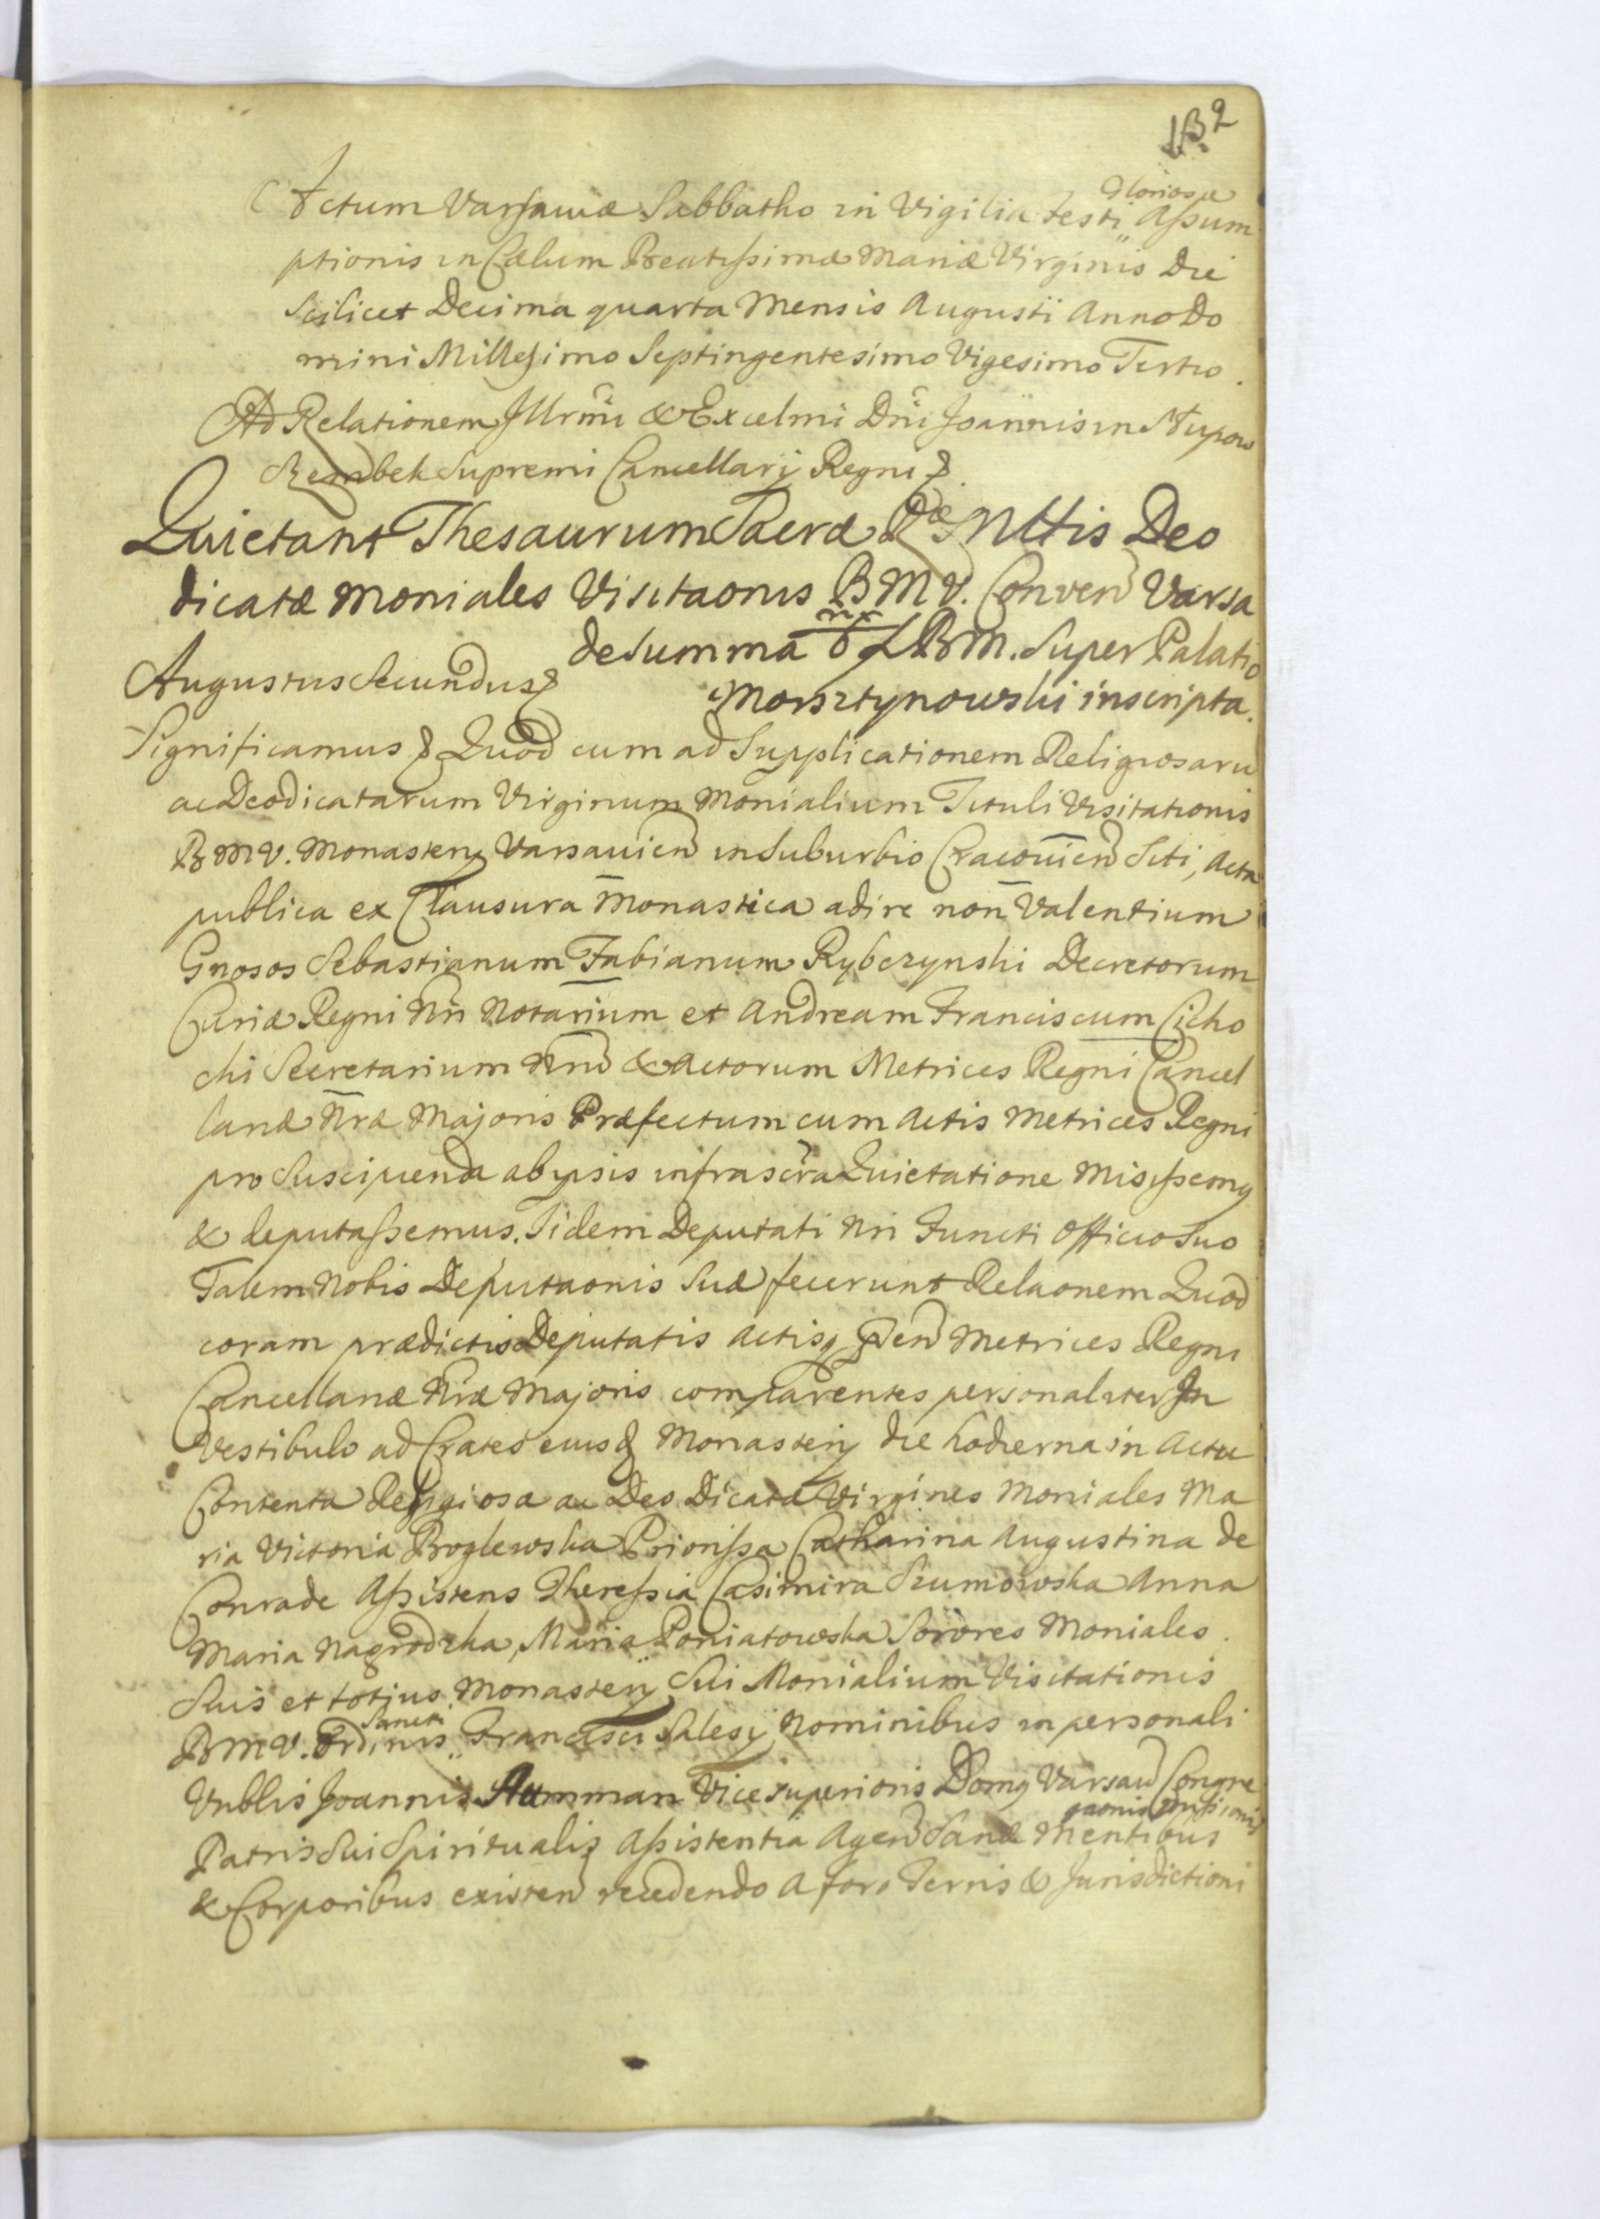 Actum Varsaviæ Sabbatho in Vigilia Festi Gloriosæ Assum
ptionis in Cælum Beatissimæ Mariæ Virginis Die
Scilicet Decima quarta Mensis Augusti Anno Do
mini Millesimo Septingentesimo Vigesimo Tertio.
Ad Relationem Illrmi & Excelmi Dni Joannis in Słupow
Szembek Supremi Cancellarij Regni &.
Quietant Thesaurum Sacræ Ræ Mttis Deo
dicatæ Moniales Visitaonis B M V. Conven Varsa
de Summa
B M. Super Palatio
Augustus Secundus &
Morsztynowski inscripta.
Significamus & Quod cum ad Supplicationem Religiosaru
ac Deodicatarum Virginum Monialium Tituli Visitationis
B M V. Monasterij Varsavien in Suburbio Cracovien Siti, Acta
publica ex Clausura Monastica adire non Valentium
Gnosos Sebastianum Fabianum Rybczynski Decretorum
Curiæ Regni Nri Notarium et Andream Franciscum Cicho
cki Secretarium Nrum & Actorum Metrices Regni Cancel
lariæ Nræ Majoris Præfectum cum Actis Metrices Regni
pro Suscipienda ab ipsis infrascra Quietatione Misissemq
& deputassemus. Iidem Deputati Nri Functi Officio Suo
Talem Nobis Deputaonis Suæ fecerunt Relaonem Quod
coram prædictis Deputatis Actisq pñen Metrices Regni
Cancellariæ Nræ Majoris comparentes personaliter In
Vestibulo ad Crates eiusd Monasterij die hodierna in Actu
Contenta Religiosæ ac Deo Dicatæ Virgines Moniales Ma
ria Victoria Broglewska Priorissa Catharina Augustina de
Conrade Assistens Theressia Casimira Szumowska Anna
Maria Nagrodzka, Maria Poniatowska Sorores Moniales.
Suis et totius Monasterij Sui Monialium Visitationis
B M V. Ordinis Sancti Francisci Salesij Nominibus in personali
Vnblis Joannis Aumman Vice Superioris Domq Varsav Congre
gaonis Missionis
Patris Sui Spiritualis Assistentia Agen Sanæ Mentibus
& Corporibus existen recedendo a foro Terris & Jurisdictioni